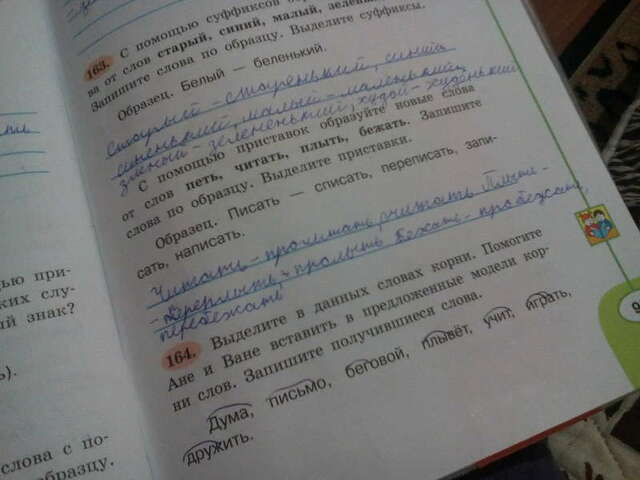 163. С помощью суффиксов
ва от слов старый, синий, малый,
Запишите слова по образцу. Выделите суффиксы.
Образец. Белый — беленький.
старый – старенький, синий
синенький, малый – маленький,
зелёненький, худой – худенький
С помощью приставок образуйте новые слова
от слов петь, читать, плыть, бежать. Запишите
слова по образцу. Выделите приставки.
Образец. Писать — списать, переписать, запи-
сать, написать.
Читать – прочитать, считать
– проплыть бежать – пробежать,
перебежать
164. Выделите в данных словах корни. Помогите
Ане и Ване вставить в предложенные модели кор-
ни слов. Запишите получившиеся слова.
Дума, письмо, беговой, плывёт, учит, играть,
дружить.
ью при-
ких слу-
й знак?
ь).
слова с по-
образцу.